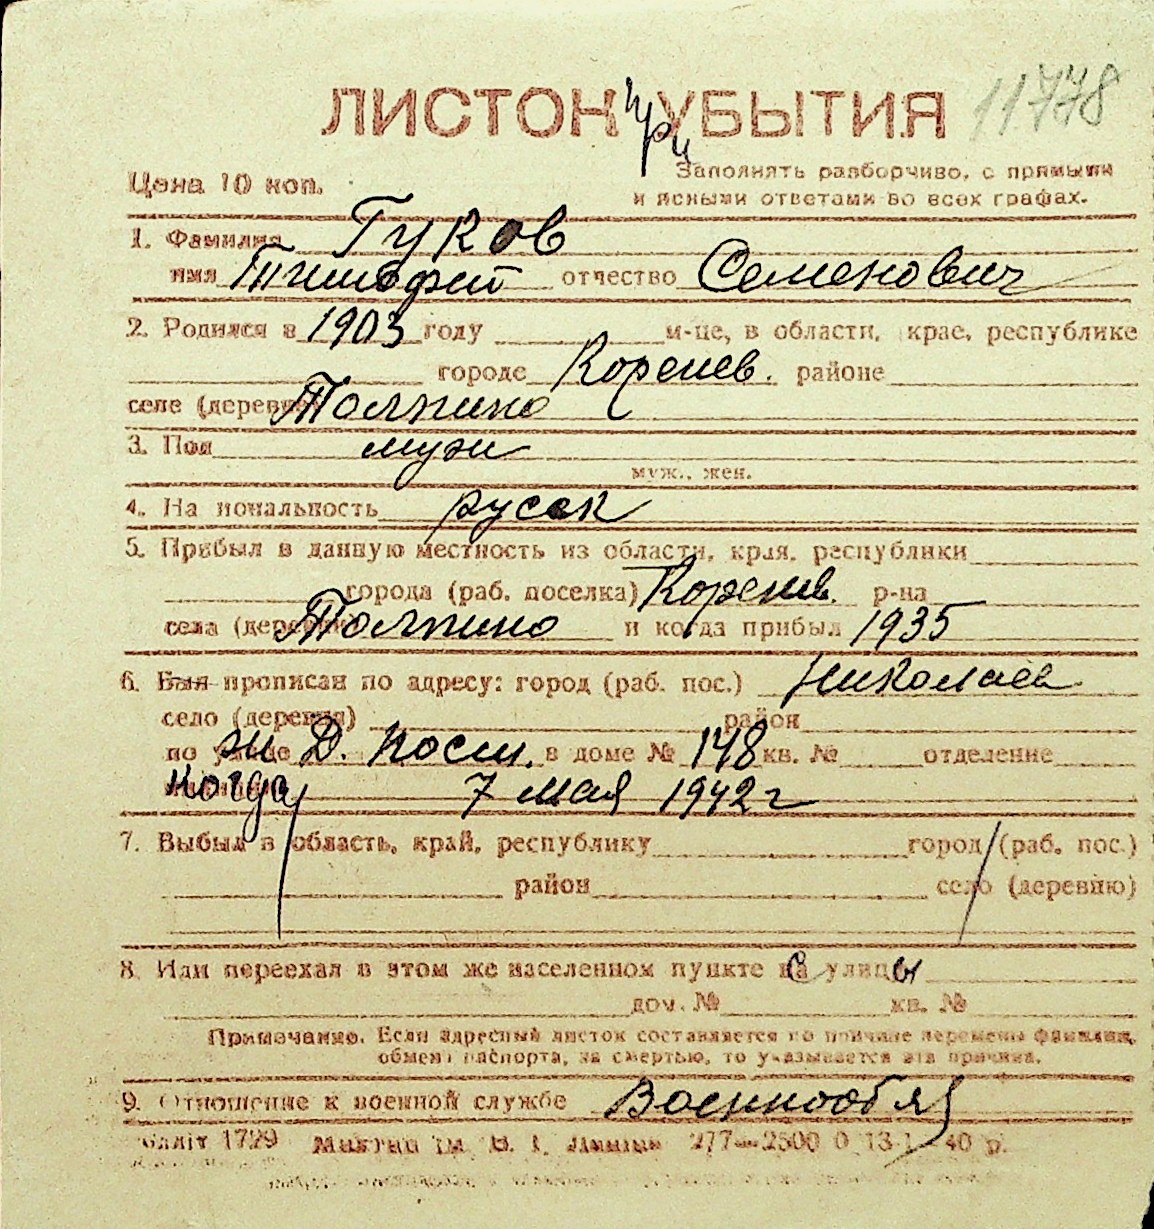 11778
ЛИСТОК при УБЫТИЯ
Цена 10 коп.
Заполнять разборчиво, с прямыми
и ясными ответами во всех графах.
1. Фамилия Гуков
имя Тимофей отчество Семенович
2. Родился в 1903 году м-це, в области, крае, республике
городе Коренев. районе
селе (деревне) Толпино
3. Пол муж
муж., жен.
4. Национальность русск
5. Прибыл в данную местность из области, края, республики
города (раб. поселка) Коренев. р-на
села (деревни) Толпино и когда прибыл 1935
6. Был прописан по адресу: город (раб. пос.) Николаев
село (деревня) район
по улице Д. в доме № 148 кв. № отделение
когда 7 мая 1942 г
7. Выбыл в область, край, республику город (раб. пос.)
район село (деревню)
8. Или переехал в этом же населенном пункте с улицы
дом. № кв. №
Примечание. Если адресный листок составляется по причине перемены фамилии,
обмена паспорта, за смертью, то указывается эта причина.
9. Отношение к военной службе Военнообяз
1729 277—2500 0 13 40 р.